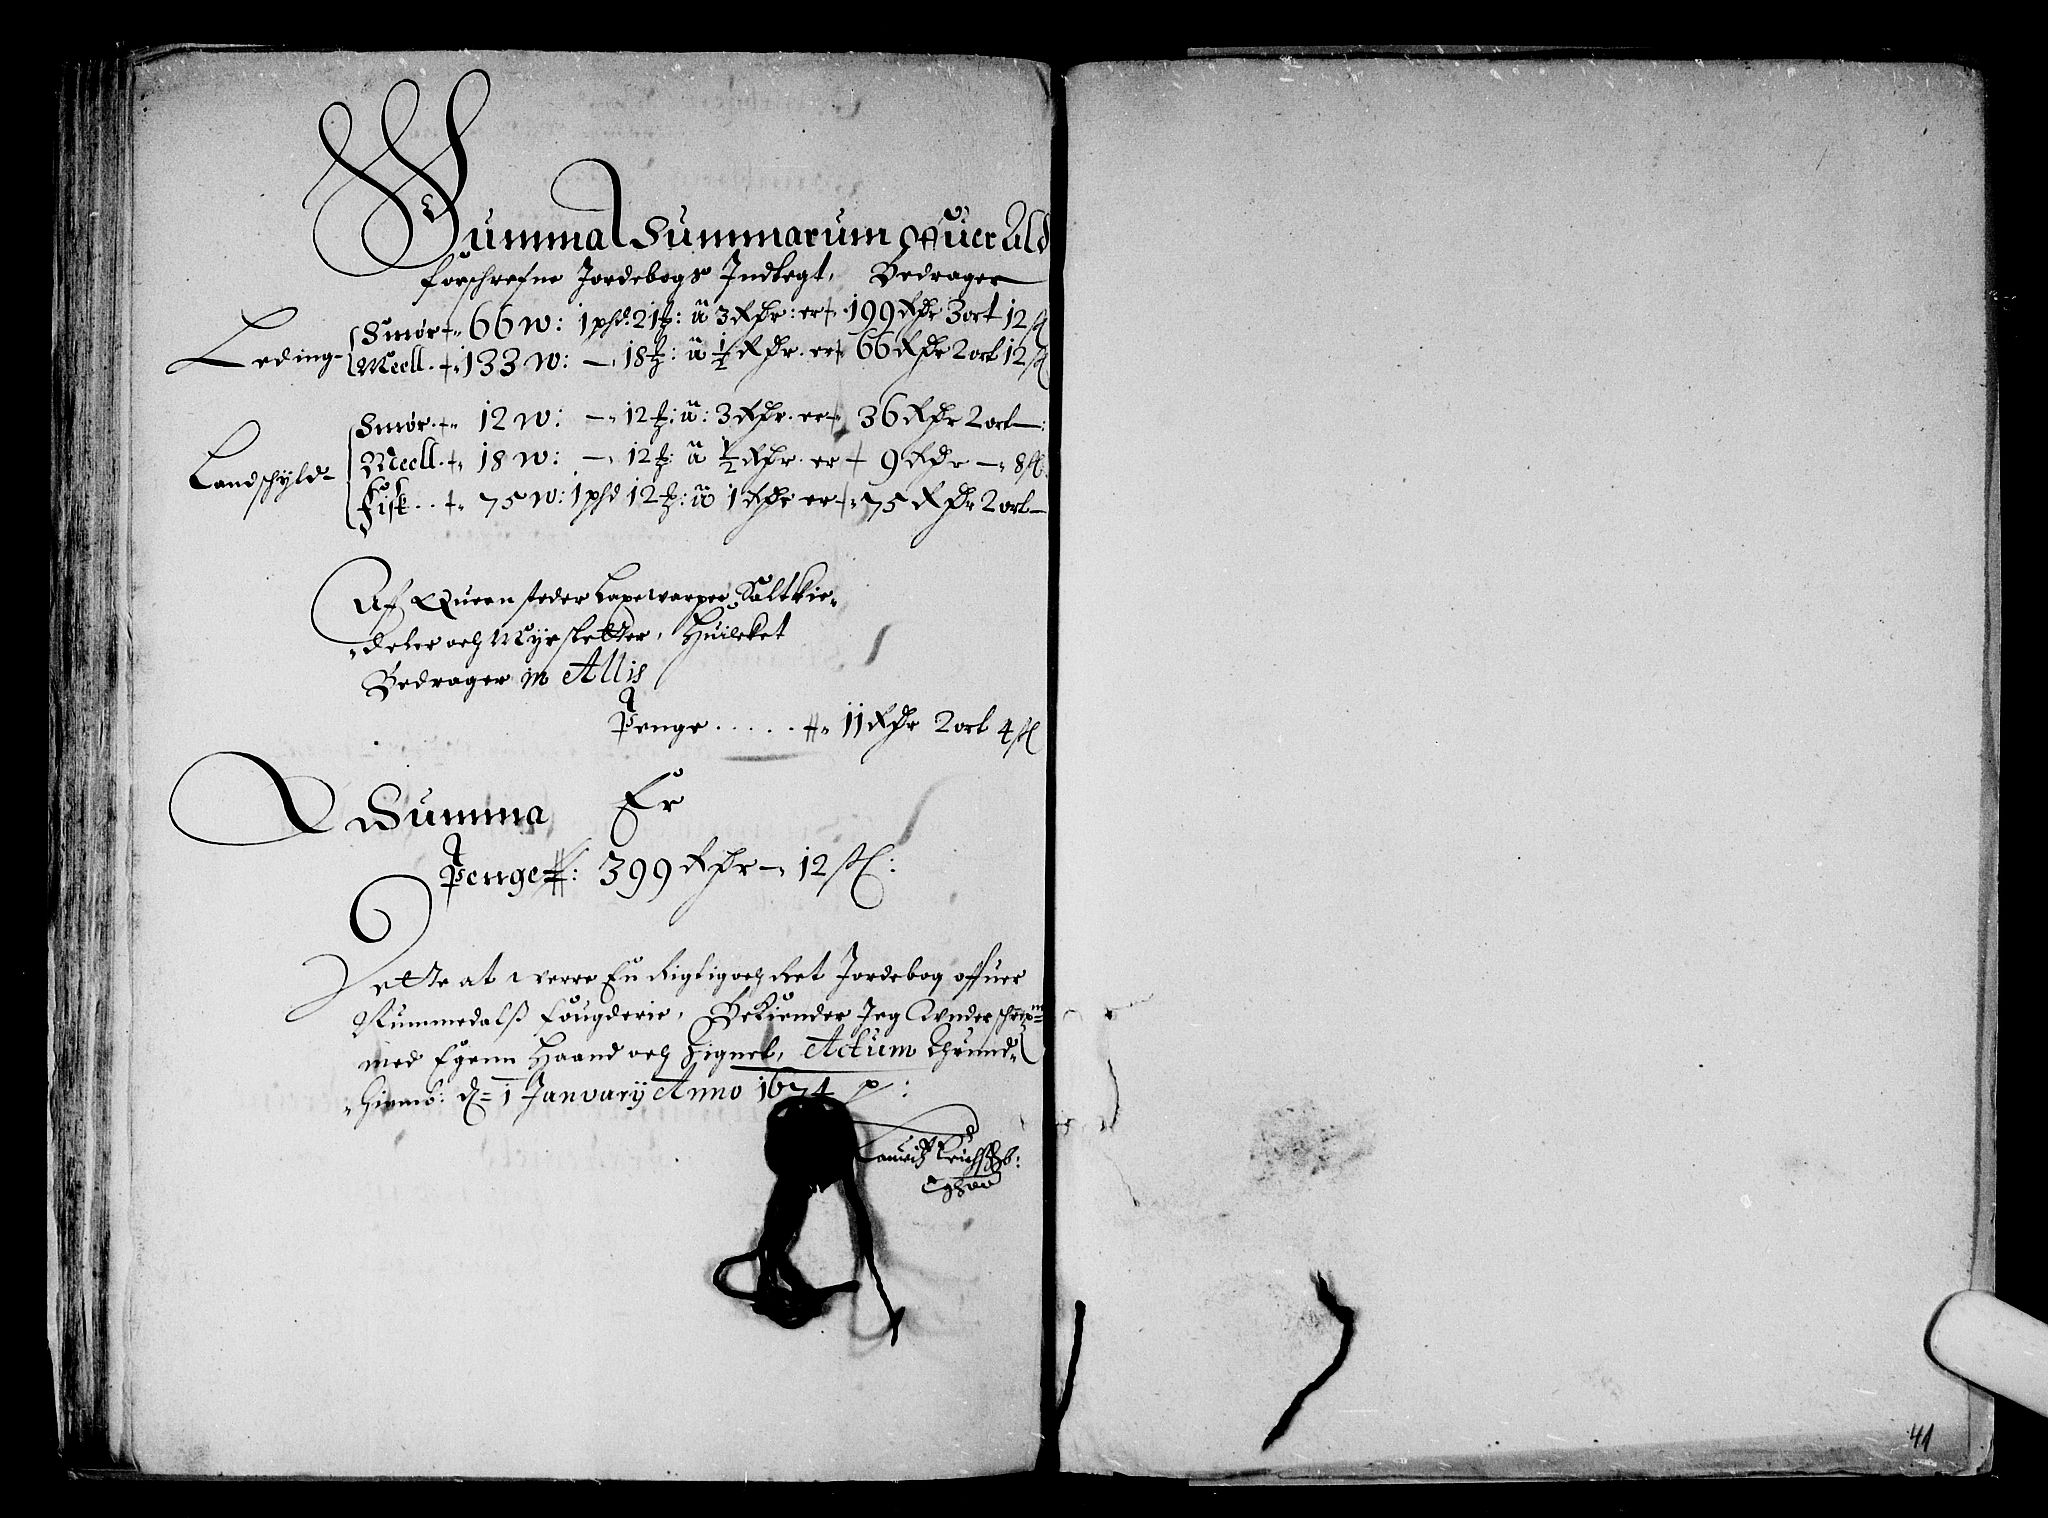 Summa Summarum Offuer Ald
forschrefne Jordebogs Indtegt, Bedrager
Leding
Smør 66 w: 1 phd: 21 ℔: â 3 Rdr: er 199 Rdr 3 ort 12 ß
Meell 133 w: — 18 ℔: â ½ Rdr. er 66 Rdr 2 ort 12 ß
Landschyld
Smør 12 w: — 12 ℔: â: 3 Rdr. er 36 Rdr 2 ort —
Meell 18 w: — 12 ℔: â ½ Rdr. er 9 Rdr — 8 ß
Fisk 75 w: 1 phd 12 ℔: â 1 Rdr er 75 Rdr 2 ort —
Af Quernsteder Laxewarper, Saltkie-
deler och Myrsletter, Huilcket
Bedrager in Allis
Penge ..... 11 Rdr 2 ort 4 ß
Summa Er
Penge: 399 Rdr — 12 ß:
Dette at werre En Rigtig och Ret Jordebog offuer
Nummedalß fougderie, Bekiender Jeg Vnderschrefne
med Egenn Haand och Signet, Actum Thrund-
hiemb: d= 1 January Anno 1674 p:
Lauritz
41